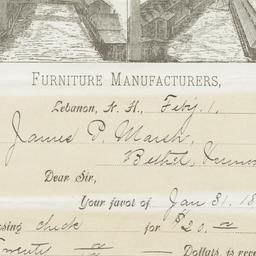 FURNITURE MANUFACTURERS,
Lebanon, N. H., Feby. 1,
James P. Marsh,
Bethel, Vermo
Dear Sir,
Your favor of Jan 31, 18
osing check for $20.
Twenty Dollars, is rece